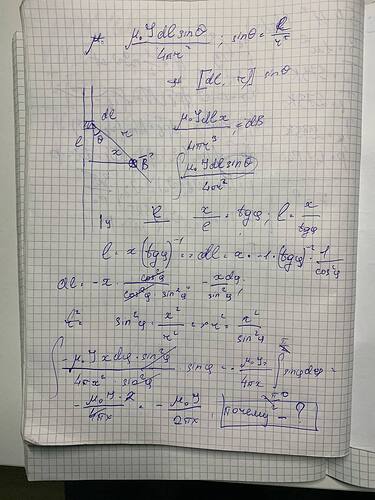 μ₀ μ₀ I dl sinθ / 4πr² ; sinθ = R / r²
⇒ [dl, r] sinθ
dl
μ₀ I dl x / 4πr³ = dB
l θ r
x B?
∫ μ₀ I dl sinθ / 4πr²
x / l = tgφ ; l = x / tgφ
l = x (tgφ)⁻¹ ⇒ dl = x · -1 · (tgφ)⁻² · 1 / cos²φ
dl = -x · cos²φ / cos²φ · sin²φ = -x dφ / sin²φ ;
r² = sin²φ = x² / r² ⇒ r² = x² / sin²φ
∫ -μ₀ I x dφ · sin²φ / 4πx² · sin²φ sinφ = - μ₀ I / 4πx ∫ sinφ dφ =
- μ₀ I · 2 / 4πx = - μ₀ I / 2πx ; почему - ?